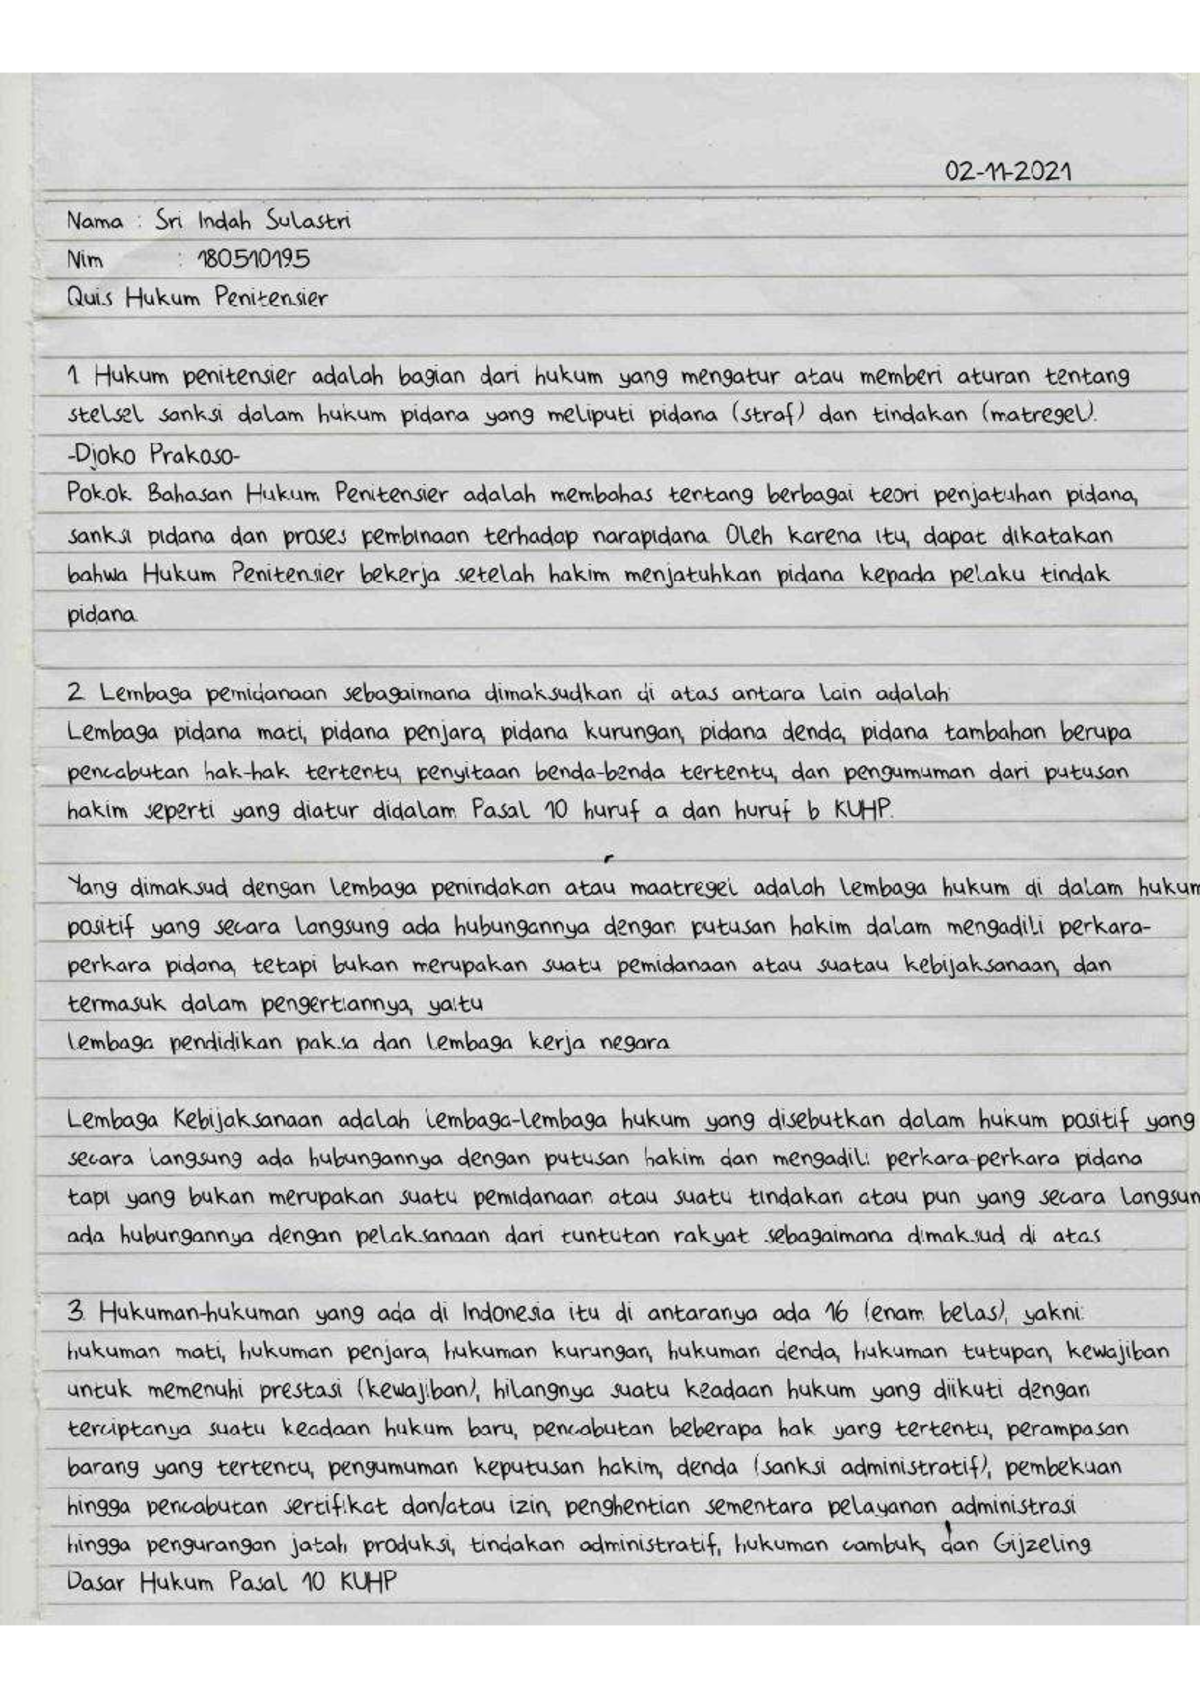 02-11-2021
Nama : Sri Indah Sulastri
Nim : 180510195
Quis Hukum Penitensier
1. Hukum penitensier adalah bagian dari hukum yang mengatur atau memberi aturan tentang
stelsel sanksi dalam hukum pidana yang meliputi pidana (straf) dan tindakan (matregel).
-Djoko Prakoso-
Pokok Bahasan Hukum Penitensier adalah membahas tentang berbagai teori penjatuhan pidana,
sanksi pidana dan proses pembinaan terhadap narapidana. Oleh karena itu, dapat dikatakan
bahwa Hukum Penitensier bekerja setelah hakim menjatuhkan pidana kepada pelaku tindak
pidana.
2. Lembaga pemidanaan sebagaimana dimaksudkan di atas antara lain adalah
Lembaga pidana mati, pidana penjara, pidana kurungan, pidana denda, pidana tambahan berupa
pencabutan hak-hak tertentu, penyitaan benda-benda tertentu, dan pengumuman dari putusan
hakim seperti yang diatur didalam Pasal 10 huruf a dan huruf b KUHP.
Yang dimaksud dengan lembaga penindakan atau maatregel adalah lembaga hukum di dalam hukum
positif yang secara langsung ada hubungannya dengan putusan hakim dalam mengadili perkara-
perkara pidana, tetapi bukan merupakan suatu pemidanaan atau suatau kebijaksanaan, dan
termasuk dalam pengertiannya, yaitu
lembaga pendidikan paksa dan lembaga kerja negara
Lembaga Kebijaksanaan adalah lembaga-lembaga hukum yang disebutkan dalam hukum positif yang
secara langsung ada hubungannya dengan putusan hakim dan mengadili perkara-perkara pidana
tapi yang bukan merupakan suatu pemidanaan atau suatu tindakan atau pun yang secara langsun
ada hubungannya dengan pelaksanaan dari tuntutan rakyat sebagaimana dimaksud di atas
3. Hukuman-hukuman yang ada di Indonesia itu di antaranya ada 16 (enam belas), yakni:
hukuman mati, hukuman penjara, hukuman kurungan, hukuman denda, hukuman tutupan, kewajiban
untuk memenuhi prestasi (kewajiban), hilangnya suatu keadaan hukum yang diikuti dengan
terciptanya suatu keadaan hukum baru, pencabutan beberapa hak yang tertentu, perampasan
barang yang tertentu, pengumuman keputusan hakim, denda (sanksi administratif), pembekuan
hingga pencabutan sertifikat dan/atau izin, penghentian sementara pelayanan administrasi
hingga pengurangan jatah produksi, tindakan administratif, hukuman cambuk, dan Gijzeling
Dasar Hukum Pasal 10 KUHP